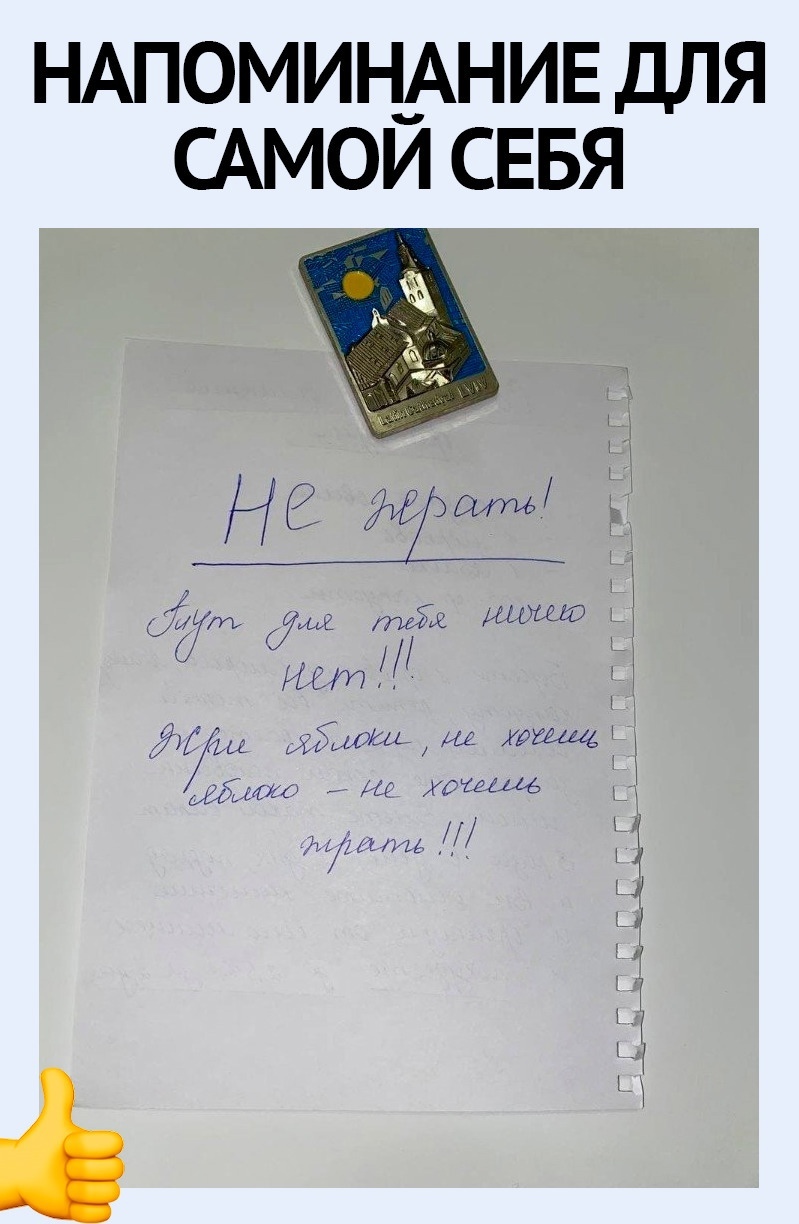 НАПОМИНАНИЕ ДЛЯ
САМОЙ СЕБЯ
LVIV
Не жрать!
Тут для тебя ничего
нет!!!
Жри яблоки, не хочешь
яблоко – не хочешь
жрать!!!